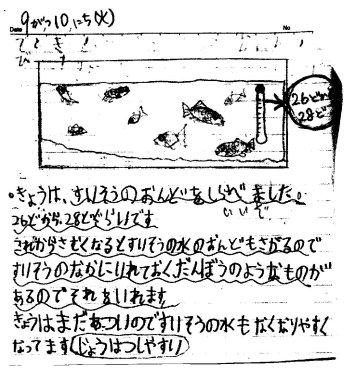 9がつ10にち(火)
Date
No
26どから
28ど
。きょうは、すいそうのおんどをしらべました。
26どから28どぐらいです
これからさむくなるとすいそうの水のおんどもさがるので
すいそうのなかにいれておくだんぼうのようなものが
あるのでそれをいれます
きょうはまだあついのですいそうの水もなくなりやすく
なってます(じょうはつしやすい)